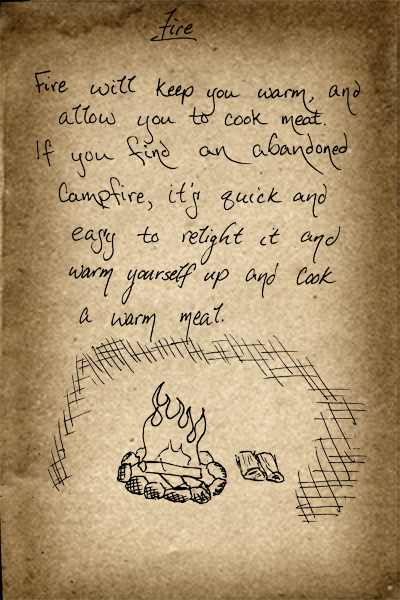 Fire
Fire will keep you warm, and
allow you to cook meat.
If you find an abandoned
Campfire, it's quick and
easy to relight it and
warm yourself up and cook
a warm meat.